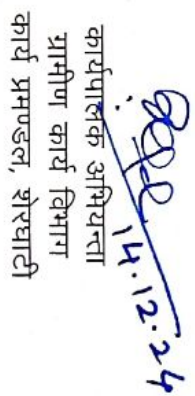 14.12.24
कार्यपालक अभियन्ता
ग्रामीण कार्य विभाग
कार्य प्रमण्डल, शेरघाटी